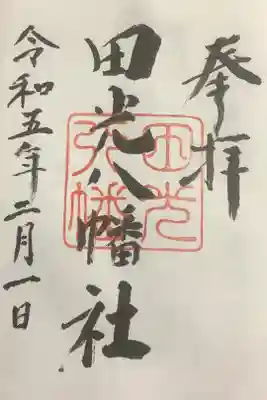 奉拝
田光八幡社
令和五年二月一日
田光
八幡